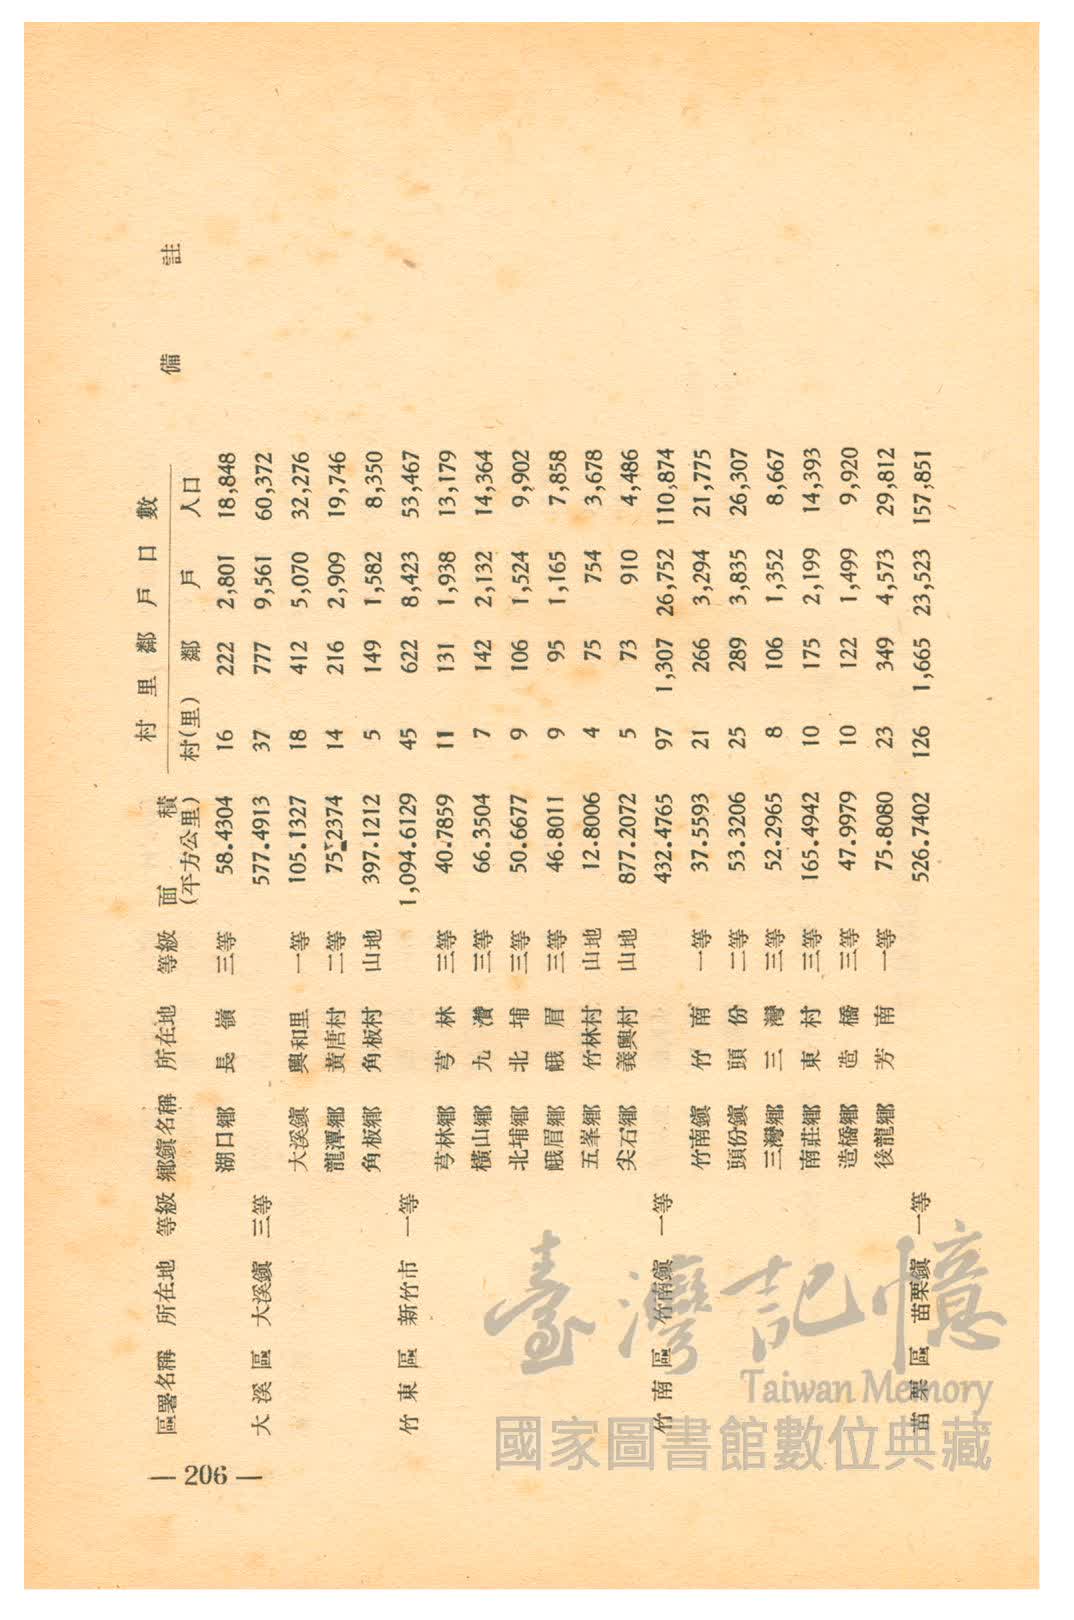 — 206 —
村 里 鄰 戶 口 數
區署名稱 所在地 等級 鄉鎭名稱 所在地 等級 面積(平方公里) 村(里) 鄰 戶 人口 備 註
湖口鄉 長 嶺 三等 58.4304 16 222 2,801 18,848
大 溪 區 大溪鎭 三等 577.4913 37 777 9,561 60,372
大溪鎭 興和里 一等 105.1327 18 412 5,070 32,276
龍潭鄉 黃唐村 二等 75.2374 14 216 2,909 19,746
角板鄉 角板村 山地 397.1212 5 149 1,582 8,350
竹 東 區 新竹市 一等 1,094.6129 45 622 8,423 53,467
芎林鄉 芎 林 三等 40.7859 11 131 1,938 13,179
橫山鄉 九 灒 三等 66.3504 7 142 2,132 14,364
北埔鄉 北 埔 三等 50.6677 9 106 1,524 9,902
峨眉鄉 峨 眉 三等 46.8011 9 95 1,165 7,858
五峯鄉 竹林村 山地 12.8006 4 75 754 3,678
尖石鄉 義興村 山地 877.2072 5 73 910 4,486
竹 南 區 竹南鎭 一等 432.4765 97 1,307 26,752 110,874
竹南鎭 竹 南 一等 37.5593 21 266 3,294 21,775
頭份鎭 頭 份 二等 53.3206 25 289 3,835 26,307
三灣鄉 三 灣 三等 52.2965 8 106 1,352 8,667
南莊鄉 東 村 三等 165.4942 10 175 2,199 14,393
造橋鄉 造 橋 三等 47.9979 10 122 1,499 9,920
後龍鄉 芳 南 一等 75.8080 23 349 4,573 29,812
苗 栗 區 苗栗鎭 一等 526.7402 126 1,665 23,523 157,851
臺灣記憶
Taiwan Memory
國家圖書館數位典藏